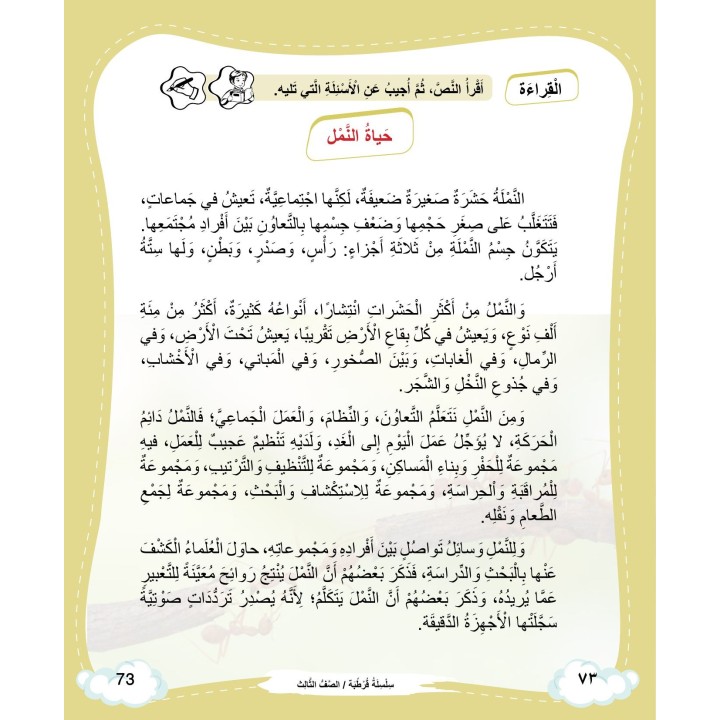 الْقِراءَة
أَقْرَأُ النَّصَّ، ثُمَّ أُجيبُ عَنِ الْأَسْئِلَةِ الَّتي تَليه.
حَياةُ النَّمْل
النَّمْلَةُ حَشَرَةٌ صَغيرَةٌ ضَعيفَةٌ، لَكِنَّها اجْتِماعِيَّةٌ، تَعيشُ في جَماعاتٍ،
فَتَتَغَلَّبُ عَلى صِغَرِ حَجْمِها وَضَعْفِ جِسْمِها بِالتَّعاوُنِ بَيْنَ أَفْرادِ مُجْتَمَعِها.
يَتَكَوَّنُ جِسْمُ النَّمْلَةِ مِنْ ثَلاثَةِ أَجْزاءٍ: رَأْسٍ، وَصَدْرٍ، وَبَطْنٍ، وَلَها سِتَّةُ
أَرْجُل.
وَالنَّمْلُ مِنْ أَكْثَرِ الْحَشَراتِ انْتِشارًا، أَنْواعُهُ كَثيرَةٌ، أَكْثَرُ مِنْ مِئَةِ
أَلْفِ نَوْعٍ، وَيَعيشُ في كُلِّ بِقاعِ الْأَرْضِ تَقْريبًا، يَعيشُ تَحْتَ الْأَرْضِ، وَفي
الرِّمالِ، وَفي الْغاباتِ، وَبَيْنَ الصُّخورِ، وَفي الْمَباني، وَفي الْأَخْشابِ،
وَفي جُذوعِ النَّخْلِ وَالشَّجَر.
وَمِنَ النَّمْلِ نَتَعَلَّمُ التَّعاوُنَ، وَالنِّظامَ، وَالْعَمَلَ الْجَماعِيَّ؛ فَالنَّمْلُ دَائِمُ
الْحَرَكَةِ، لا يُؤَجِّلُ عَمَلَ الْيَوْمِ إِلى الْغَدِ، وَلَدَيْهِ تَنْظيمٌ عَجيبٌ لِلْعَمَلِ، فيهِ
مَجْموعَةٌ لِلْحَفْرِ وَبِناءِ الْمَساكِنِ، وَمَجْموعَةٌ لِلتَّنْظيفِ وَالتَّرْتيبِ، وَمَجْموعَةٌ
لِلْمُراقَبَةِ وَالْحِراسَةِ، وَمَجْموعَةٌ لِلِاسْتِكْشافِ وَالْبَحْثِ، وَمَجْموعَةٌ لِجَمْعِ
الطَّعامِ وَنَقْلِه.
وَلِلنَّمْلِ وَسائِلُ تَواصُلٍ بَيْنَ أَفْرادِهِ وَمَجْموعاتِهِ، حاوَلَ الْعُلَماءُ الْكَشْفَ
عَنْها بِالْبَحْثِ وَالدِّراسَةِ، فَذَكَرَ بَعْضُهُمْ أَنَّ النَّمْلَ يُنْتِجُ رَوائِحَ مُعَيَّنَةً لِلتَّعْبيرِ
عَمَّا يُريدُهُ، وَذَكَرَ بَعْضُهُمْ أَنَّ النَّمْلَ يَتَكَلَّمُ؛ لِأَنَّهُ يُصْدِرُ تَرَدُّداتٍ صَوْتِيَّةً
سَجَّلَتْها الْأَجْهِزَةُ الدَّقيقَة.
٧٣
سِلْسِلَةُ قُرْطُبَة / الصَّفُّ الثَّالِث
73